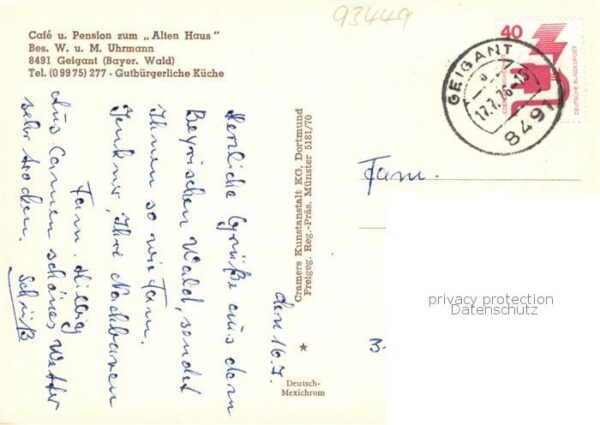 93449
Café u. Pension zum „Alten Haus"
Bes. W. u. M. Uhrmann
8491 Geigant (Bayer. Wald)
Tel. (0 99 75) 277 - Gutbürgerliche Küche
40
DEUTSCHE BUNDESPOST
GEIGANT
a
17.7.76-15
8491
den 16.7.
Herzliche Grüße aus dem
Bayrischen Wald, sendet
Ihnen so wie Fam.
Ihre Nachbaren
Fam. Hillwig
schönes Wetter
sehr trocken.
Cramers Kunstanstalt KG, Dortmund
Freigeg. Reg.-Präs. Münster 5181/70
Deutsch-
Mexichrom
Fam.
privacy protection
Datenschutz